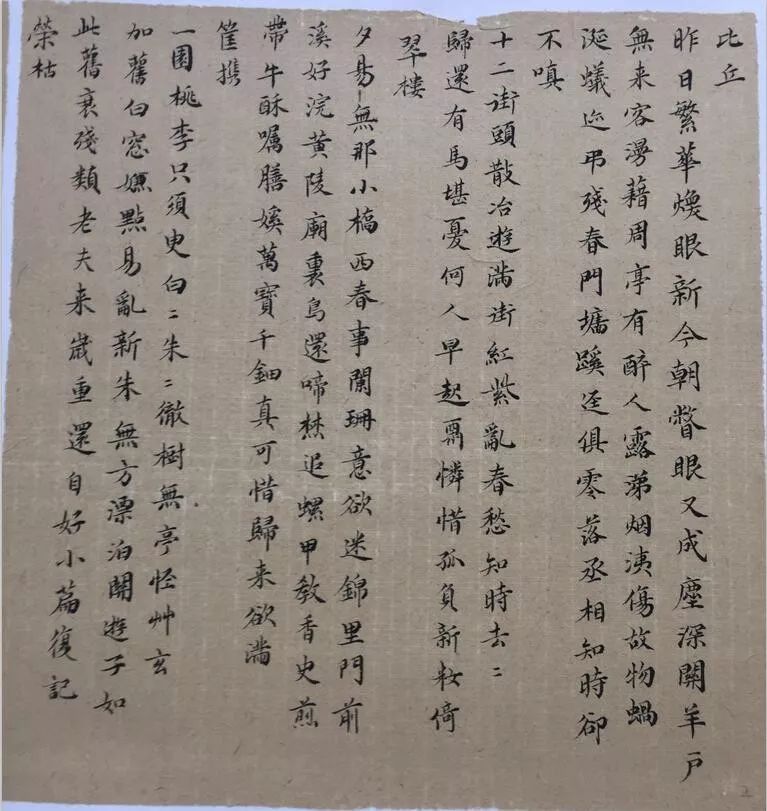 比丘
昨日繁華煥眼新今朝瞥眼又成塵深關羊戶
無来客漫藉周亭有醉人露涕烟洟傷故物蝸
涎蟻迹弔殘春門墻蹊迳俱零落丞相知時卻
不嗔
十二街頭散冶遊滿街紅紫亂春愁知時去〻
歸還有馬堪憂何人早起𠕋憐惜孤負新妝倚
翠樓
夕昜無那小橋西春事闌珊意欲迷錦里門前
溪好浣黄陵廟裏鳥還啼焚追螺甲教香史煎
帶牛酥囑膳媛萬寳千鈿真可惜歸来欲滿
筐攜
一園桃李只須臾白〻朱〻徹樹無亭怪艸玄
加舊白窓嫌點易亂新朱無方漂泊關遊子如
此舊衰殘類老夫来歲重還自好小篇復記
榮枯